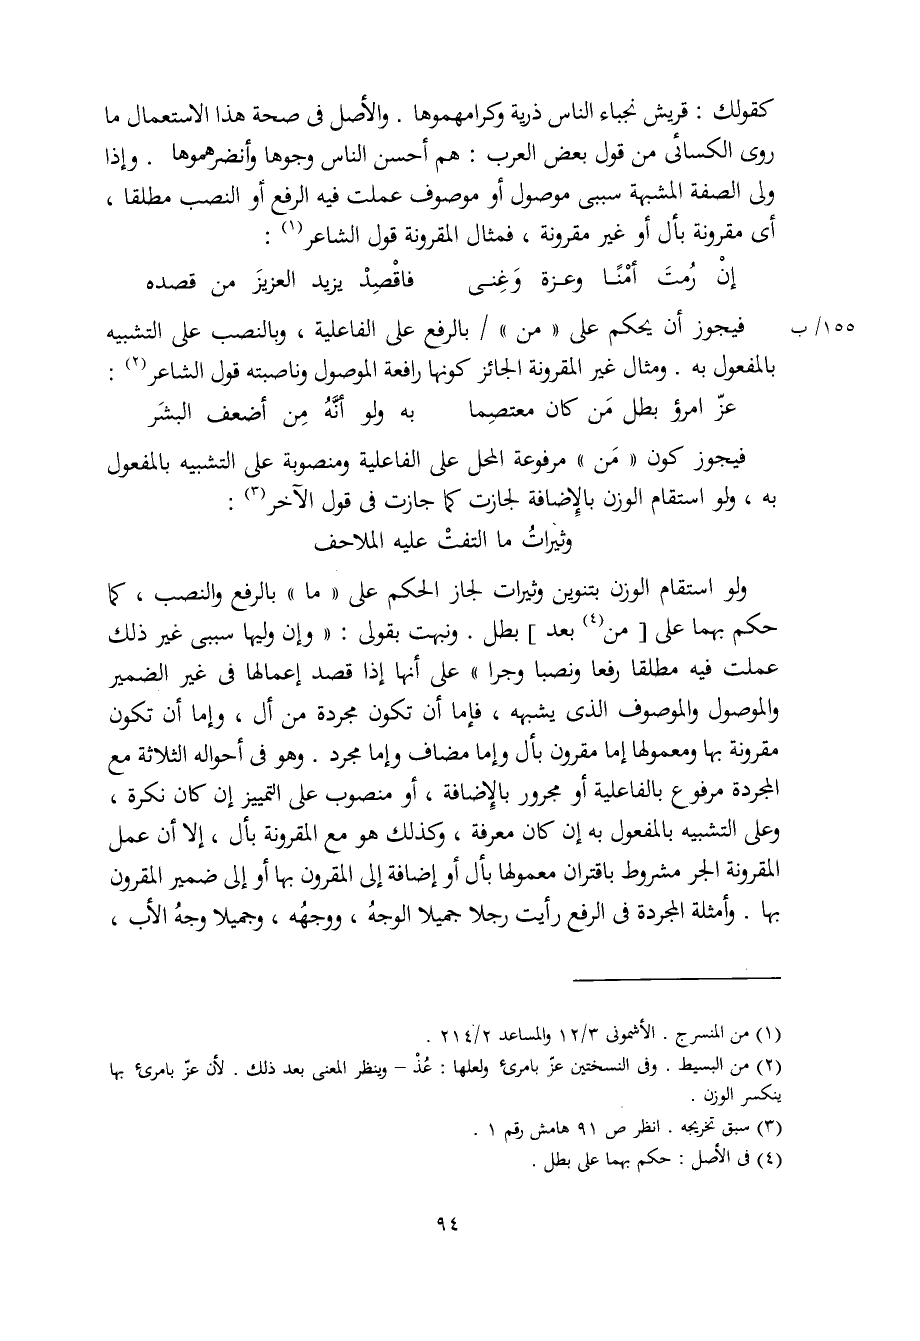 كقولك : قريش نجباء الناس ذرية وكرامهموها . والأصل فى صحة هذا الاستعمال ما
روى الكسائى من قول بعض العرب : هم أحسن الناس وجوها وأنضرهموها . وإذا
ولى الصفة المشبهة سببى موصول أو موصوف عملت فيه الرفع أو النصب مطلقا ،
أى مقرونة بأل أو غير مقرونة ، فمثال المقرونة قول الشاعر(١) :
إنْ رُمتَ أمْنًا وعزة وَغِنى فاقْصِدْ يزيد العزيزَ من قصده
١٥٥/ ب فيجوز أن يحكم على « من » / بالرفع على الفاعلية ، وبالنصب على التشبيه
بالمفعول به . ومثال غير المقرونة الجائز كونها رافعة الموصول وناصبته قول الشاعر(٢) :
عزّ امرؤ بطل مَن كان معتصما به ولو أنَّهُ مِن أضعف البشَر
فيجوز كون « مَن » مرفوعة المحل على الفاعلية ومنصوبة على التشبيه بالمفعول
به ، ولو استقام الوزن بالإضافة لجازت كما جازت فى قول الآخر(٣) :
وثيراتُ ما التفتْ عليه الملاحف
ولو استقام الوزن بتنوين وثيرات لجاز الحكم على « ما » بالرفع والنصب ، كما
حكم بهما على [ من(٤) بعد ] بطل . ونبهت بقولى : « وإن وليها سببى غير ذلك
عملت فيه مطلقا رفعا ونصبا وجرا » على أنها إذا قصد إعمالها فى غير الضمير
والموصول والموصوف الذى يشبهه ، فإما أن تكون مجردة من أل ، وإما أن تكون
مقرونة بها ومعمولها إما مقرون بأل وإما مضاف وإما مجرد . وهو فى أحواله الثلاثة مع
المجردة مرفوع بالفاعلية أو مجرور بالإضافة ، أو منصوب على التمييز إن كان نكرة ،
وعلى التشبيه بالمفعول به إن كان معرفة ، وكذلك هو مع المقرونة بأل ، إلا أن عمل
المقرونة الجر مشروط باقتران معمولها بأل أو إضافة إلى المقرون بها أو إلى ضمير المقرون
بها . وأمثلة المجردة فى الرفع رأيت رجلا جميلا الوجهُ ، ووجهُه ، وجميلا وجهُ الأب ،
(١) من المنسرح . الأشمونى ١٢/٣ والمساعد ٢١٤/٢ .
(٢) من البسيط . وفى النسختين عزّ بامرئ ولعلها : عُذْ – وينظر المعنى بعد ذلك . لأن عزّ بامرئ بها
ينكسر الوزن .
(٣) سبق تخريجه . انظر ص ٩١ هامش رقم ١ .
(٤) فى الأصل : حكم بهما على بطل .
٩٤